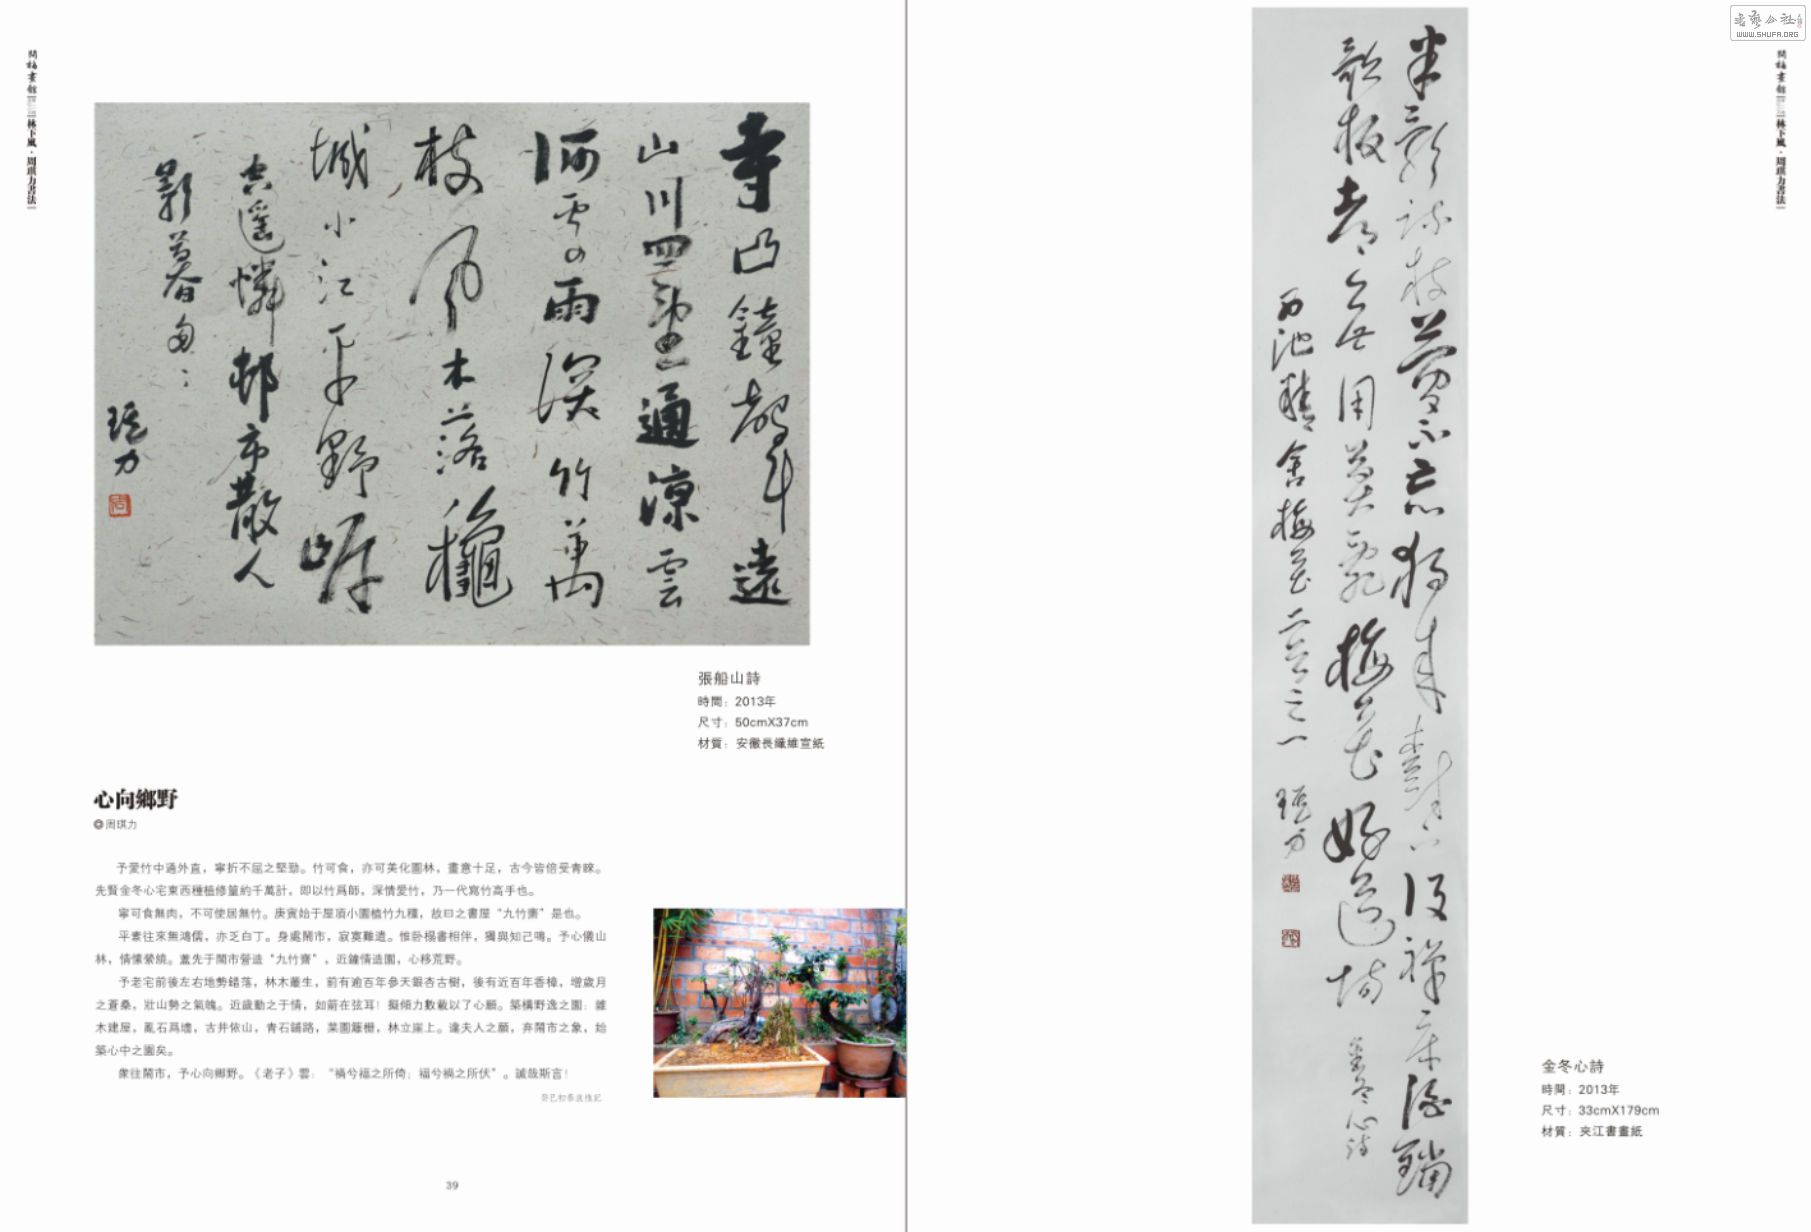 問梅畫館
林下風·周琪力書法
寺凸鐘聲遠
山川四望通涼雲
雨深竹萬
枝風木落龝
城小江平野岸
空遙憐邨市散人
影暮匆匆
琪力
張船山詩
時間：2013年
尺寸：50cmX37cm
材質：安徽長纖維宣紙
心向鄉野
周琪力
予愛竹中通外直，寧折不屈之堅勁。竹可食，亦可美化園林，畫意十足，古今皆倍受青睞。
先賢金冬心宅東西種植修篁約千萬計，即以竹爲師，深情愛竹，乃一代寫竹高手也。
寧可食無肉，不可使居無竹。庚寅始于屋頂小園植竹九種，故曰之書屋“九竹齋”是也。
平素往來無鴻儒，亦乏白丁。身處鬧市，寂寞難遣。惟卧榻書相伴，獨與知己鳴。予心儀山
林，情愫縈繞。蓋先于鬧市營造“九竹齋”，近鐘情造園，心移荒野。
予老宅前後左右地勢錯落，林木叢生，前有逾百年參天銀杏古樹，後有近百年香樟，增歲月
之蒼桑，壯山勢之氣魄。近歲動之于情，如箭在弦耳！擬傾力數載以了心願。築構野逸之園：雜
木建屋，亂石爲墻，古井依山，青石鋪路，菜園籬栅，林立崖上。違夫人之願，弃鬧市之象，始
築心中之園矣。
衆往鬧市，予心向鄉野。《老子》雲：“禍兮福之所倚；福兮禍之所伏”。誠哉斯言！
39
書藝公社
WWW.SHUFA.ORG
問梅畫館
林下風·周琪力書法
半影疏枝夢不忘獨來對禪床酒鐺
歌板都無用莫亂梅花好道場 金冬心詩
西池精舍梅花二首之一 琪力
金冬心詩
時間：2013年
尺寸：33cmX179cm
材質：夾江書畫紙